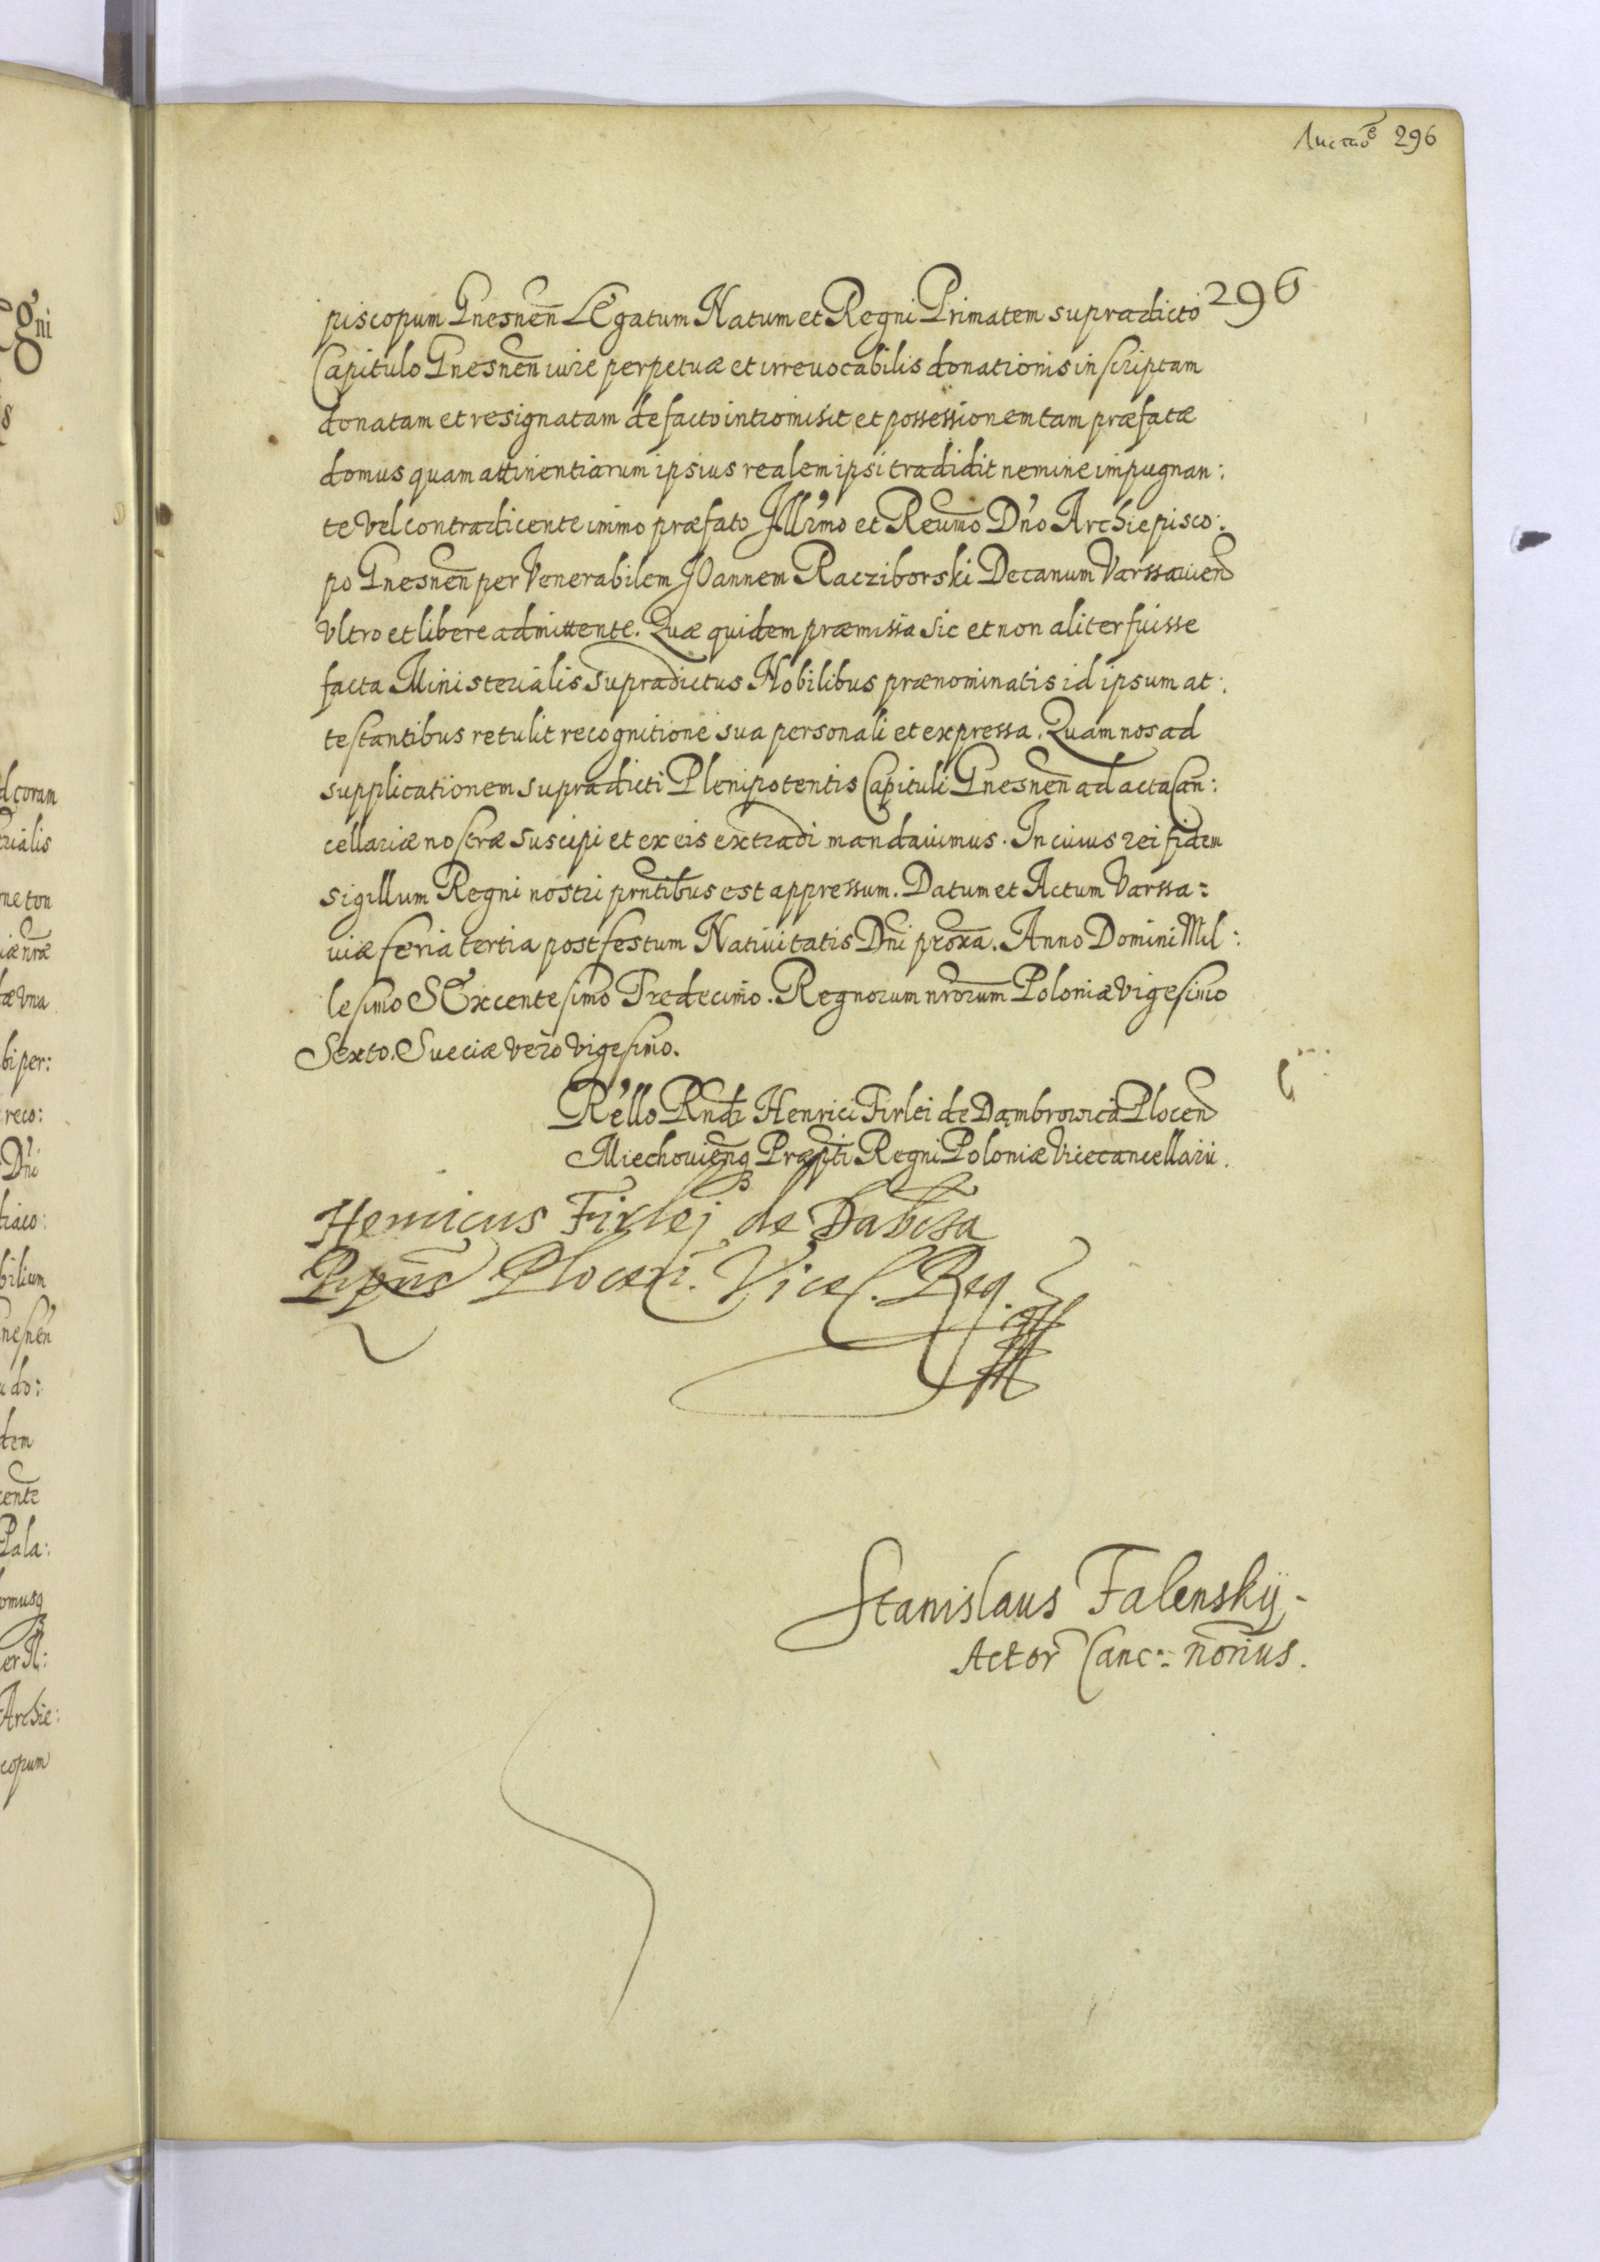 296
296
piscopum Gnesnen̄ LEgatum Natum et Regni Primatem supradicto
Capitulo Gnesnen̄ iure perpetuæ et irreuocabilis donationis inscriptam
donatam et resignatam de facto intromisit et possessionem tam præfatæ
domus quam attinentiarum ipsius realem ipsi tradidit nemine impugnan:
te Vel contradicente immo præfato Ill'mo et Reu̅mo D'no Archiepisco:
po Gnesnen̄ per Venerabilem JOannem Racziborski Decanum Varssauien̄
Vltro et libere admittente. Quæ quidem præmissa sic et non aliter fuisse
facta Ministerialis supradictus Nobilibus prænominatis id ipsum at:
testantibus retulit recognitione sua personali et expressa. Quam nos ad
supplicationem supradicti Plenipotentis Capituli Gnesnen̄ ad acta Can̄:
cellariæ nostræ suscipi et ex eis extradi mandauimus. In cuius rei fidem
sigillum Regni nostri prn̄tibus est appressum. Datum et Actum Varssa=
uiæ feria tertia post festum Natiuitatis Dn̄i prox̄a. Anno Domini Mil:
lesimo SExcentesimo Tredecimo. Regnorum nr̄orum Poloniæ Vigesimo
Sexto. Sueciæ Vero Vigesimo.
R'ello Rn̄di Henrici Firlei de Dąmbrowica Plocen̄
Miechouien̄q Præpti Regni Poloniæ Vicecancellarii.
Henricus Firlej de Dabrca
Pp̄us Plocen̄. Vicel. Reg.
Stanislaus Falenskij-
Actor̄ Canc:= nōrius.
gni
d coram
rialis
ne ton
iæ nr̄æ
tæ Vna
bi per:
reco:
D'ni
bilium
nesnen̄
do:
dem
cente
Pala:
omusq
er Il:
Archie:
copum